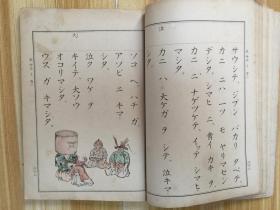 サウシテ、ジブン バカリ タベテ、
カニ ニハ 一ツ モ ヤリマセン
デシタ。シマヒ ニ、青イ カキ ヲ、
カニ ニ ナゲツケテ、イッテ シマヒ
マシタ。
カニ ハ 大ケガ ヲ シテ、泣キマ
シタ。
ソコ ヘ ハチ ガ
アソビ ニ キマ
シタ。
泣ク ワケ ヲ
キイテ、大ソウ
オコリマシタ。
ウス ガ キマシタ。